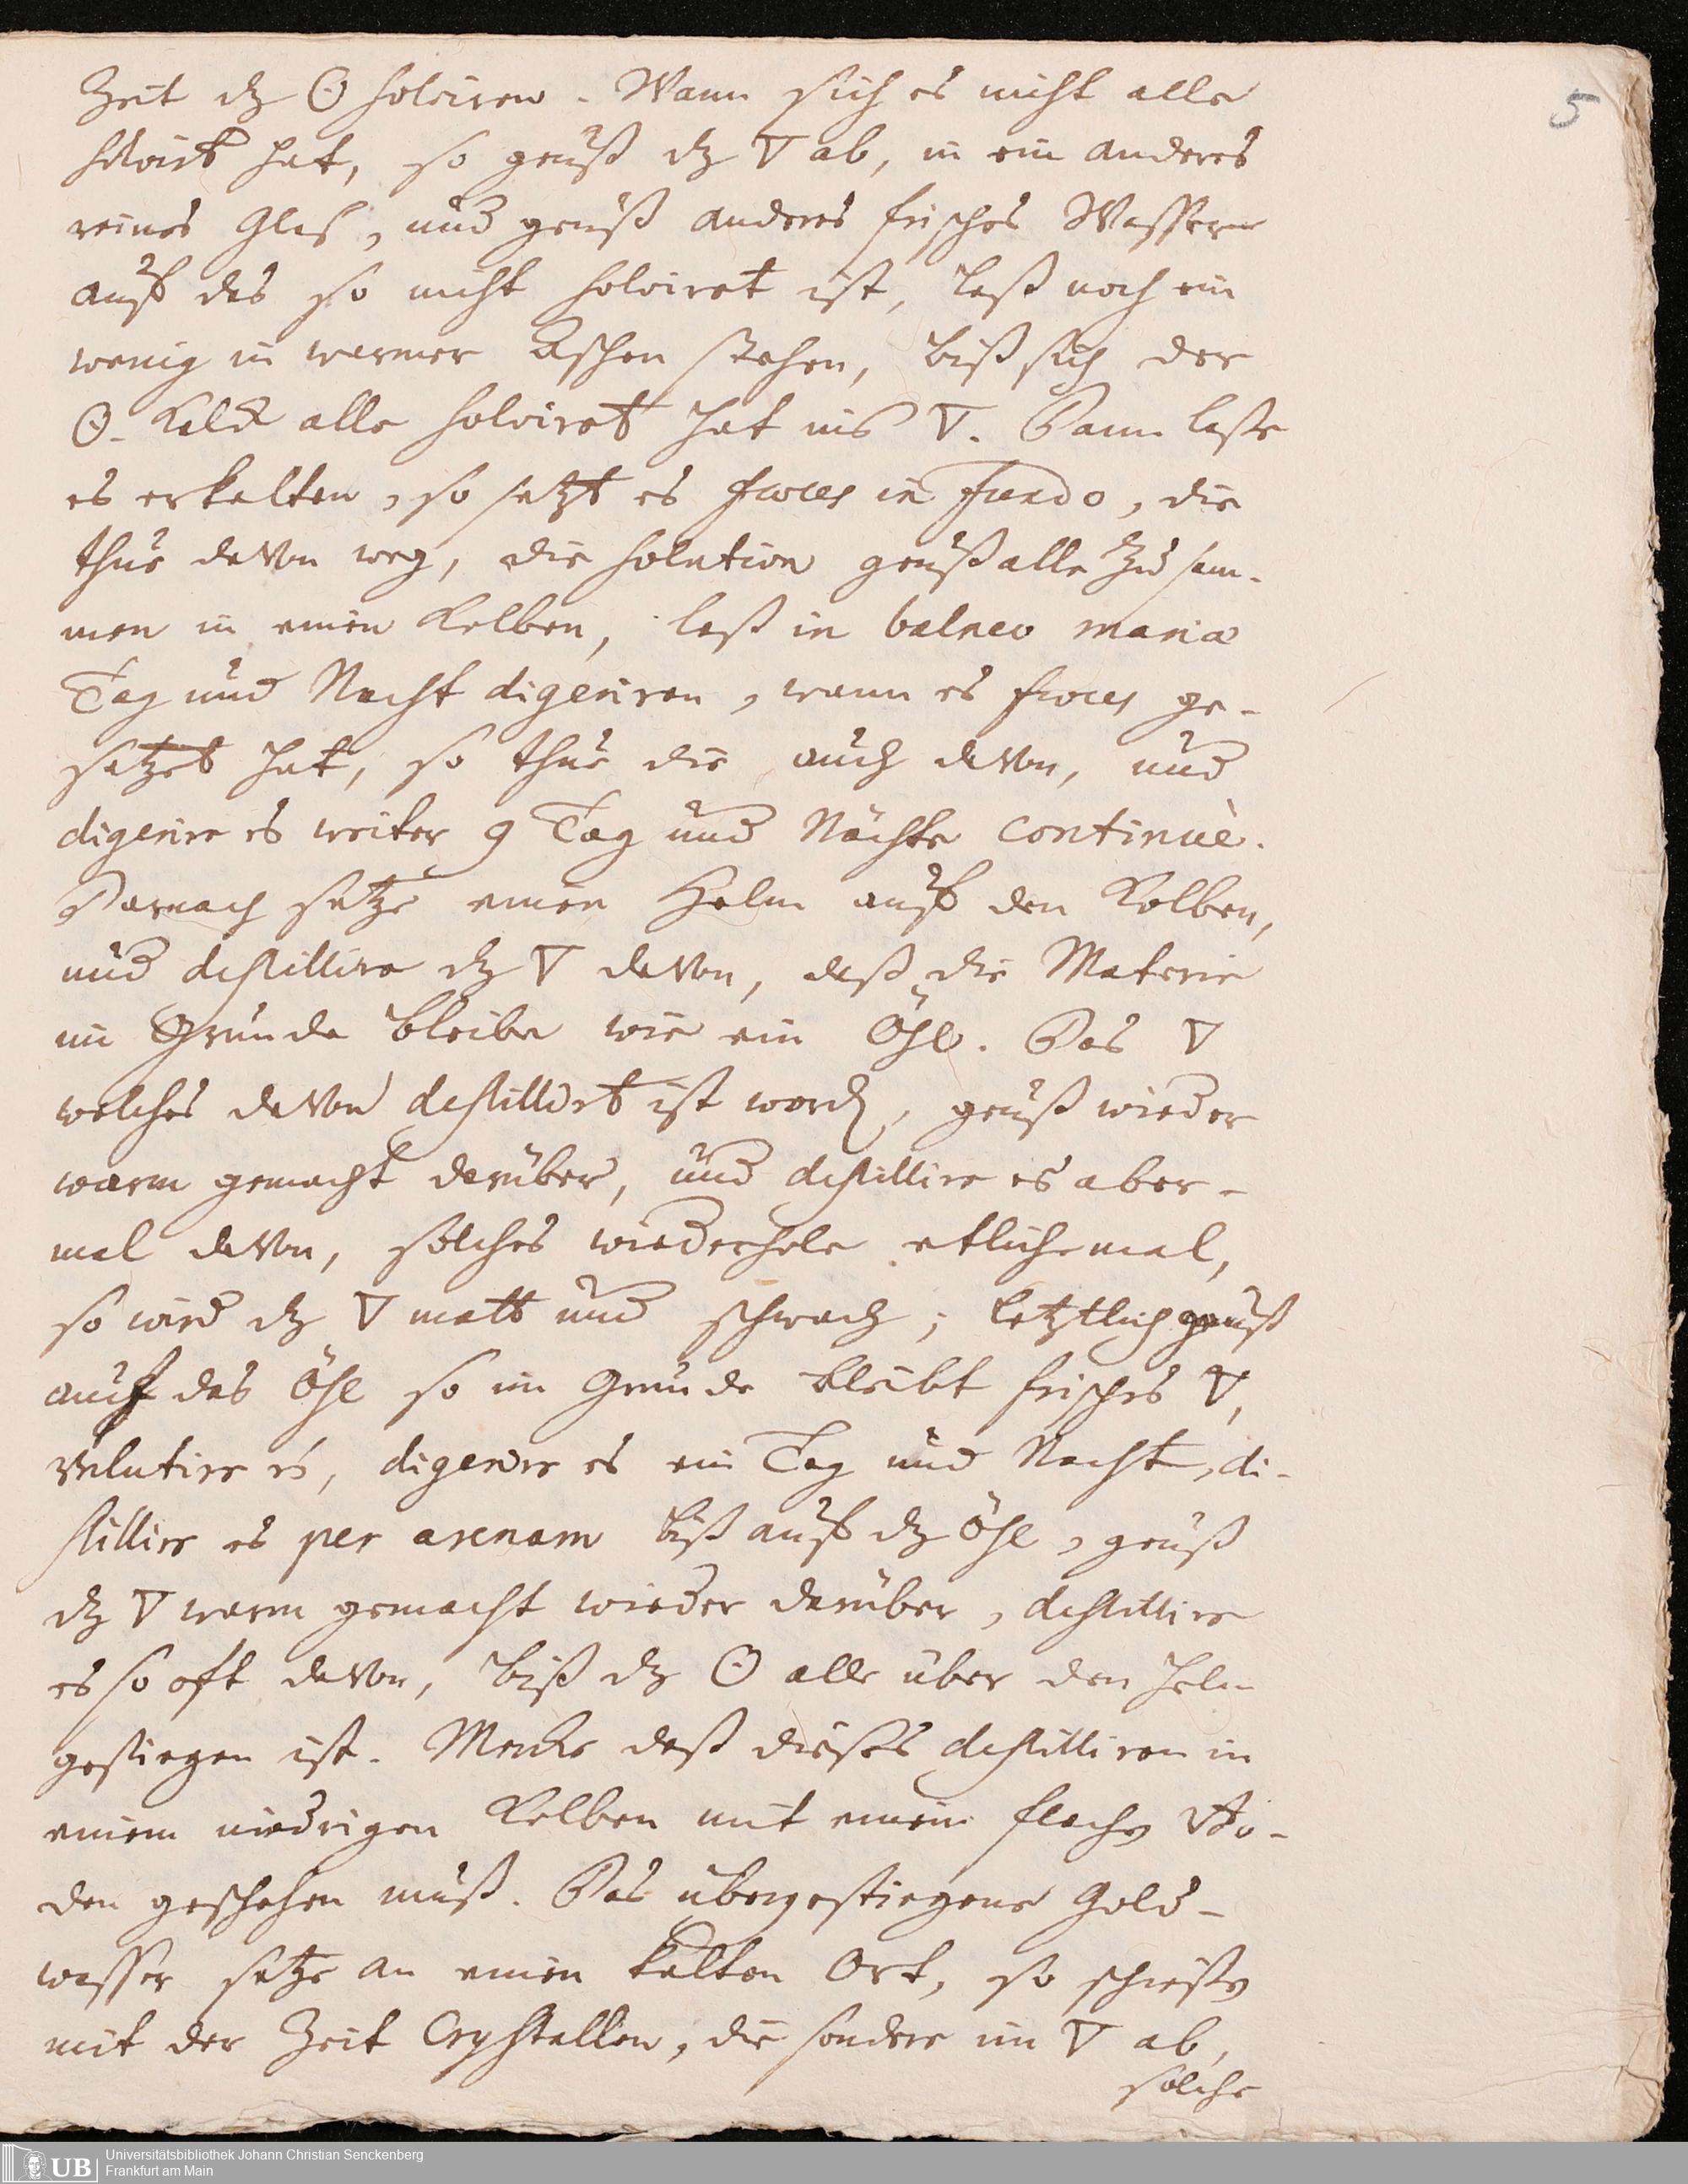 5
Zeit dz ☉ solviren. Wann sich es nicht alle
solvirt hat, so geuß dz 🜄 ab, in ein anderes
reines Glaß, und geuß anderes frisches Wassern
auff das so nicht solviret ist, laß noch ein
wenig in warmer Aschen stehen, biß sich der
☉-Kalck alle solviret hat ins 🜄. Dann laße
es erkalten, so setzt es fæces in fundo, die
thue davon weg, die solution geuß alle zu sam-
men in einen Kolben, laß in balneo mariæ
Tag und Nacht digeriren, wann es fæces ge-
setzet hat, so thue die auch davon, und
digerire es weiter 9 Tag und Nächte continuè.
Darnach setze einen Helm auff den Kolben,
und destillire dz 🜄 davon, daß die Materie
im Grunde bleibe wie ein Öhl. Das 🜄
welches davon destillirt ist word, geuß wieder
warm gemacht darüber, und destillire es aber-
mal davon, solches wiederhole etlichemal,
so wird dz 🜄 matt und schwach; letztlich geuß
auff das Öhl so im Grunde bleibt frisches 🜄,
verlutire es, digerire es ein Tag und Nacht, di-
stillire es per arenam biß auff dz Öhl, geuß
dz 🜄 warm gemacht wieder darüber, destillire
es so oft davon, biß dz ☉ alle über den Helm
gestiegen ist. Mercke daß dieses destilliren in
einem niedrigen Kolben mit einem flachen Bo-
den geschehen muß. Das übergestiegene Gold-
wasser setze an einen kalten Ort, so schießen
mit der Zeit Crystallen, die sondere im 🜄 ab,
solche
UB
Universitätsbibliothek Johann Christian Senckenberg
Frankfurt am Main